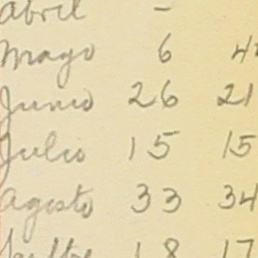 abril -
Mayo 6 4
Junio 26 21
Julio 15 15
Agosto 33 34
18 17